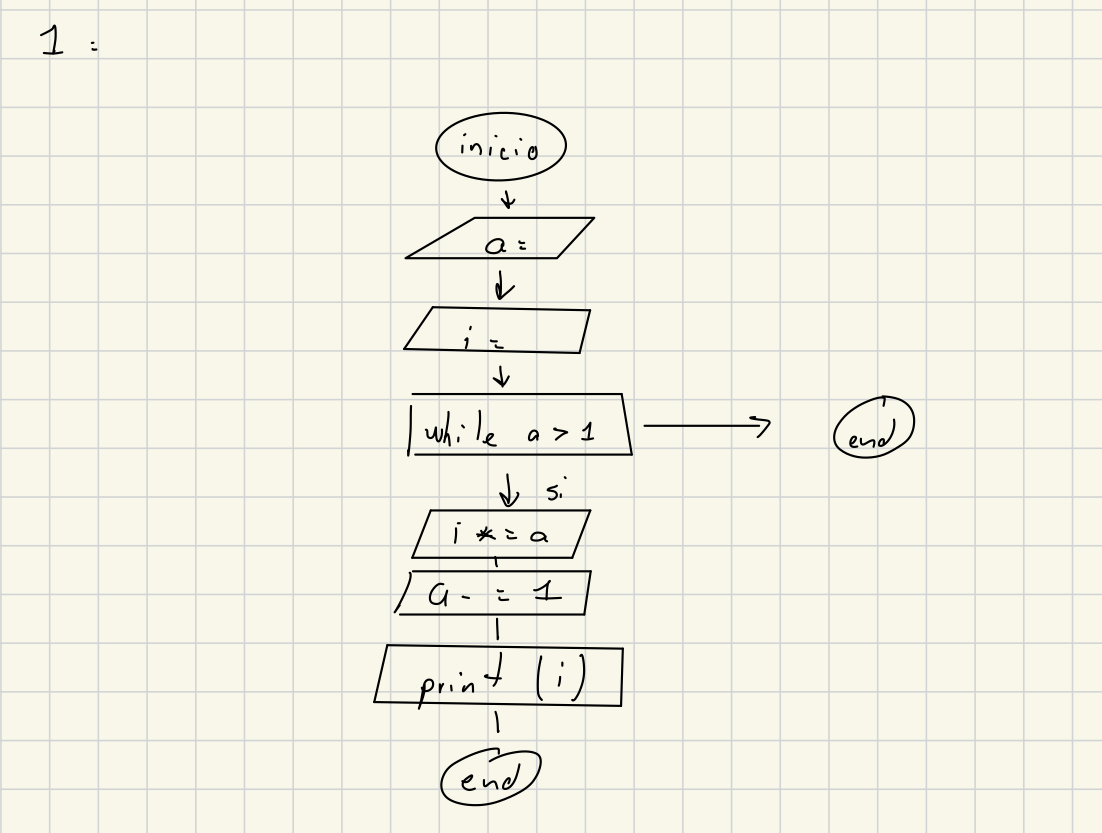 1 :
inicio
a =
i =
while a > 1
end
si
i *= a
a - = 1
print (i)
end